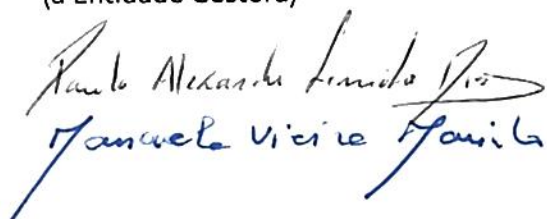 (a Entidade Gestora)
Paulo Alexandre
Manuela Vieira Marinho